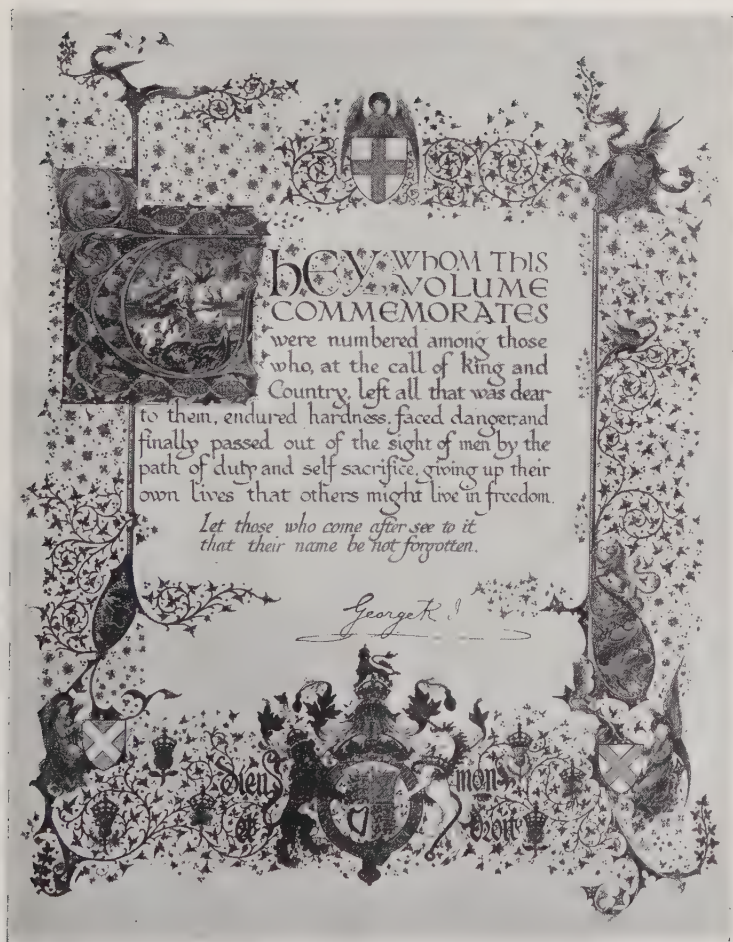 They WHOM THIS
VOLUME
COMMEMORATES
were numbered among those
who, at the call of King and
Country, left all that was dear
to them, endured hardness, faced danger, and
finally passed out of the sight of men by the
path of duty and self sacrifice, giving up their
own lives that others might live in freedom.
Let those who come after see to it
that their name be not forgotten.
George R.I.
Dieu mon
et Droit